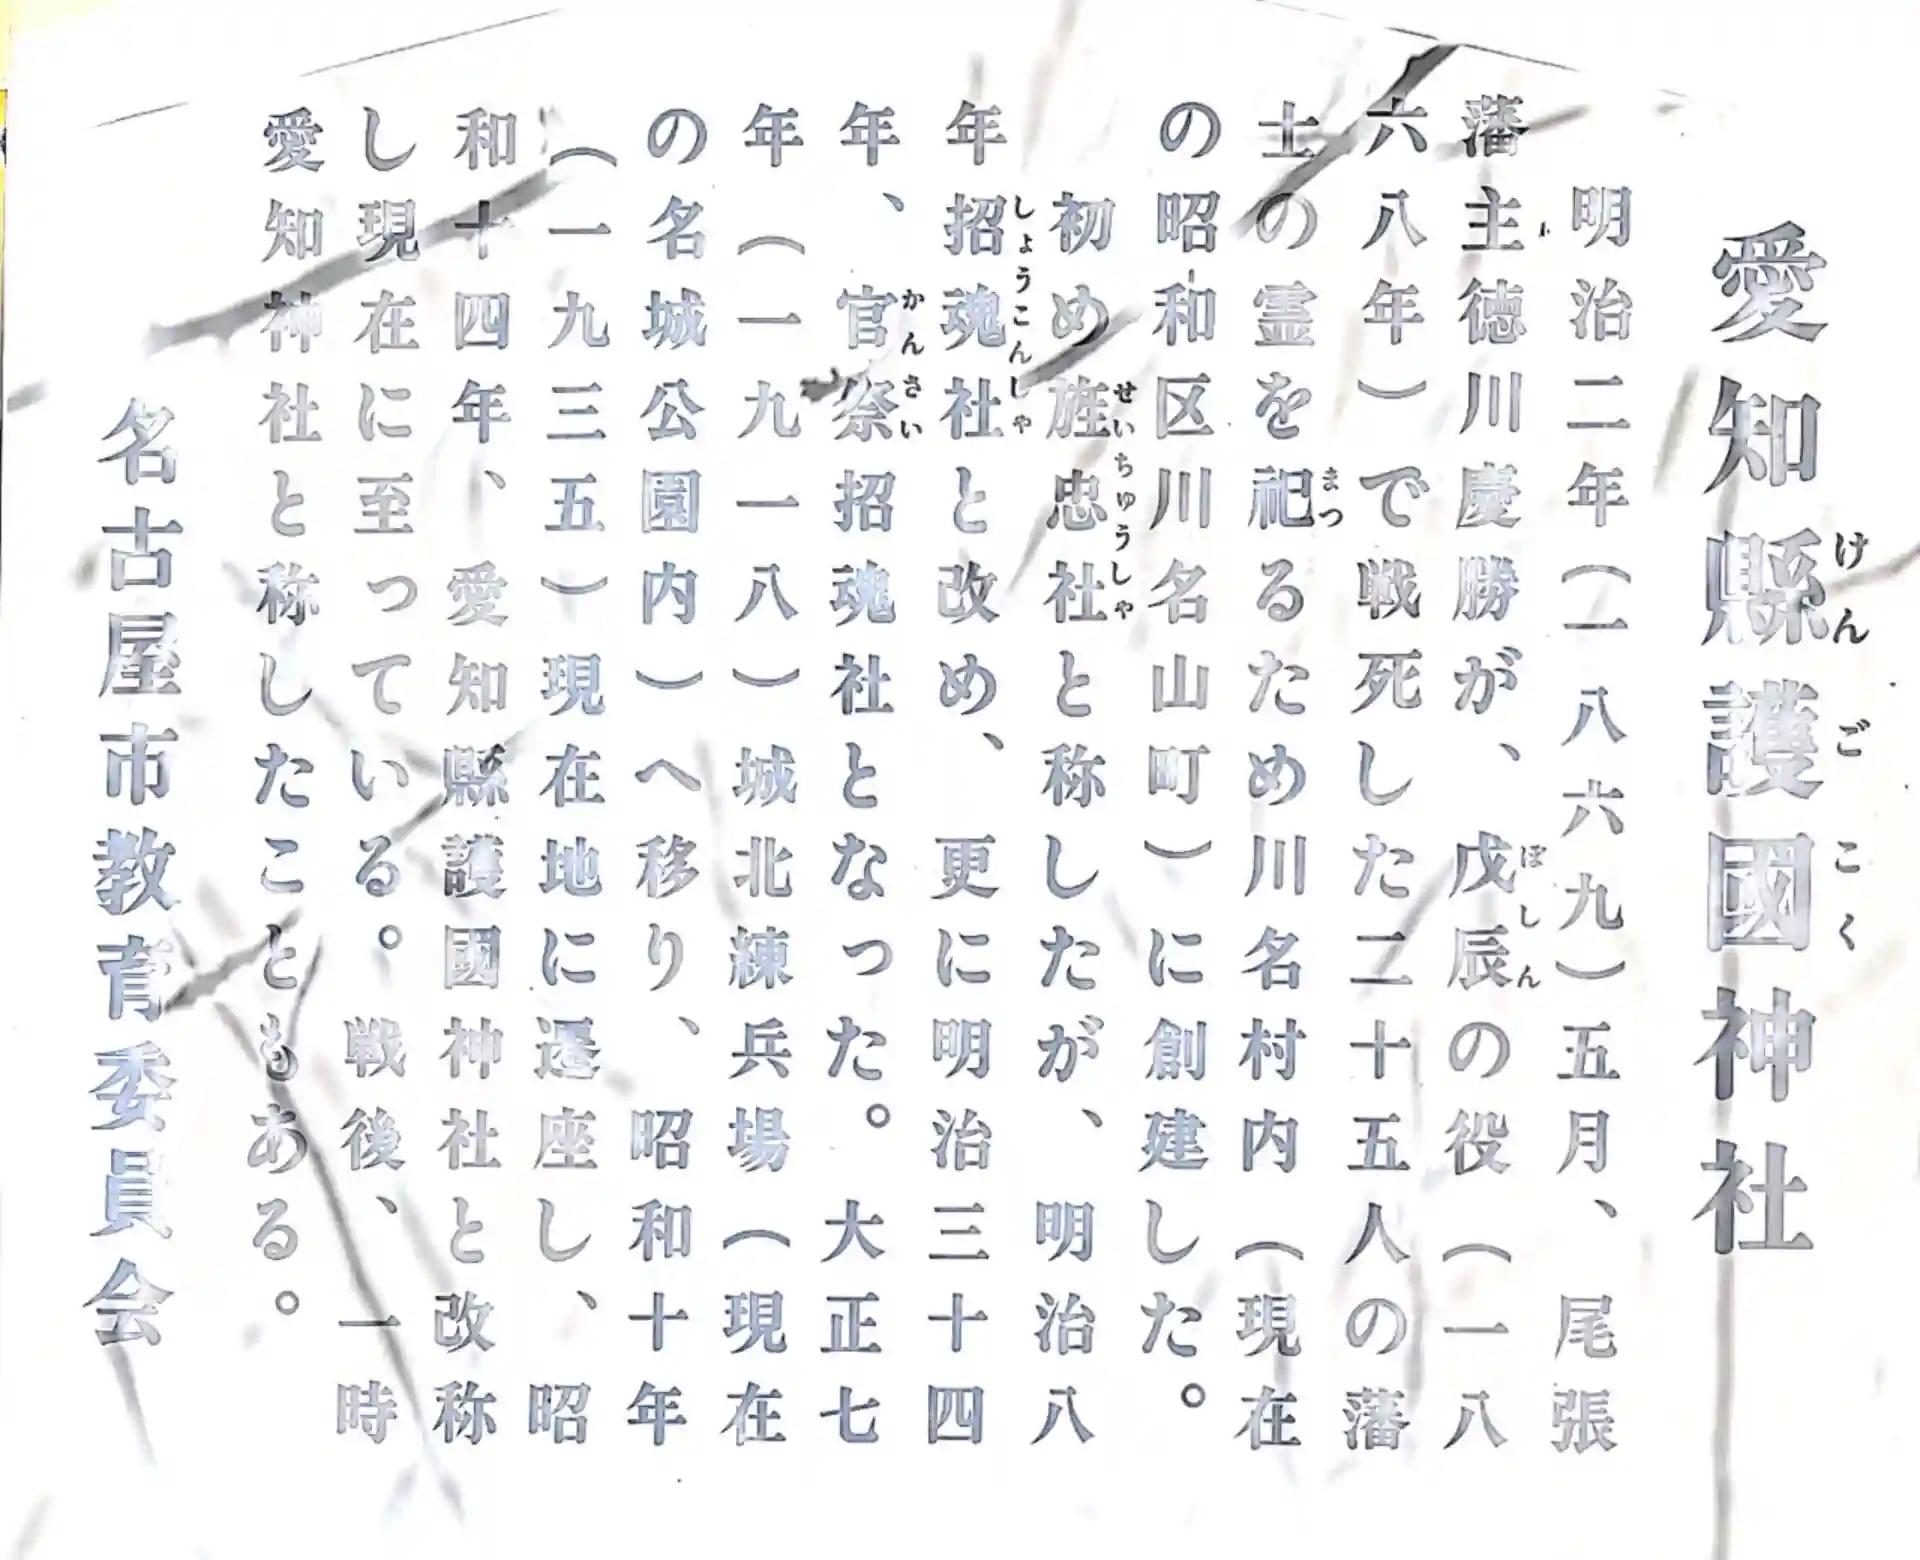 愛知縣護國神社
けんごこく
明治二年（一八六九）五月、尾張
藩主徳川慶勝が、戊辰の役（一八
ぼしん
六八年）で戦死した二十五人の藩
士の霊を祀るため川名村内（現在
まつ
の昭和区川名山町）に創建した。
初め旌忠社と称したが、明治八
せいちゅうしゃ
年招魂社と改め、更に明治三十四
しょうこんしゃ
年、官祭招魂社となった。大正七
かんさい
年（一九一八）城北練兵場（現在
の名城公園内）へ移り、昭和十年
（一九三五）現在地に遷座し、昭
和十四年、愛知縣護國神社と改称
し現在に至っている。戦後、一時
愛知神社と称したこともある。
名古屋市教育委員会